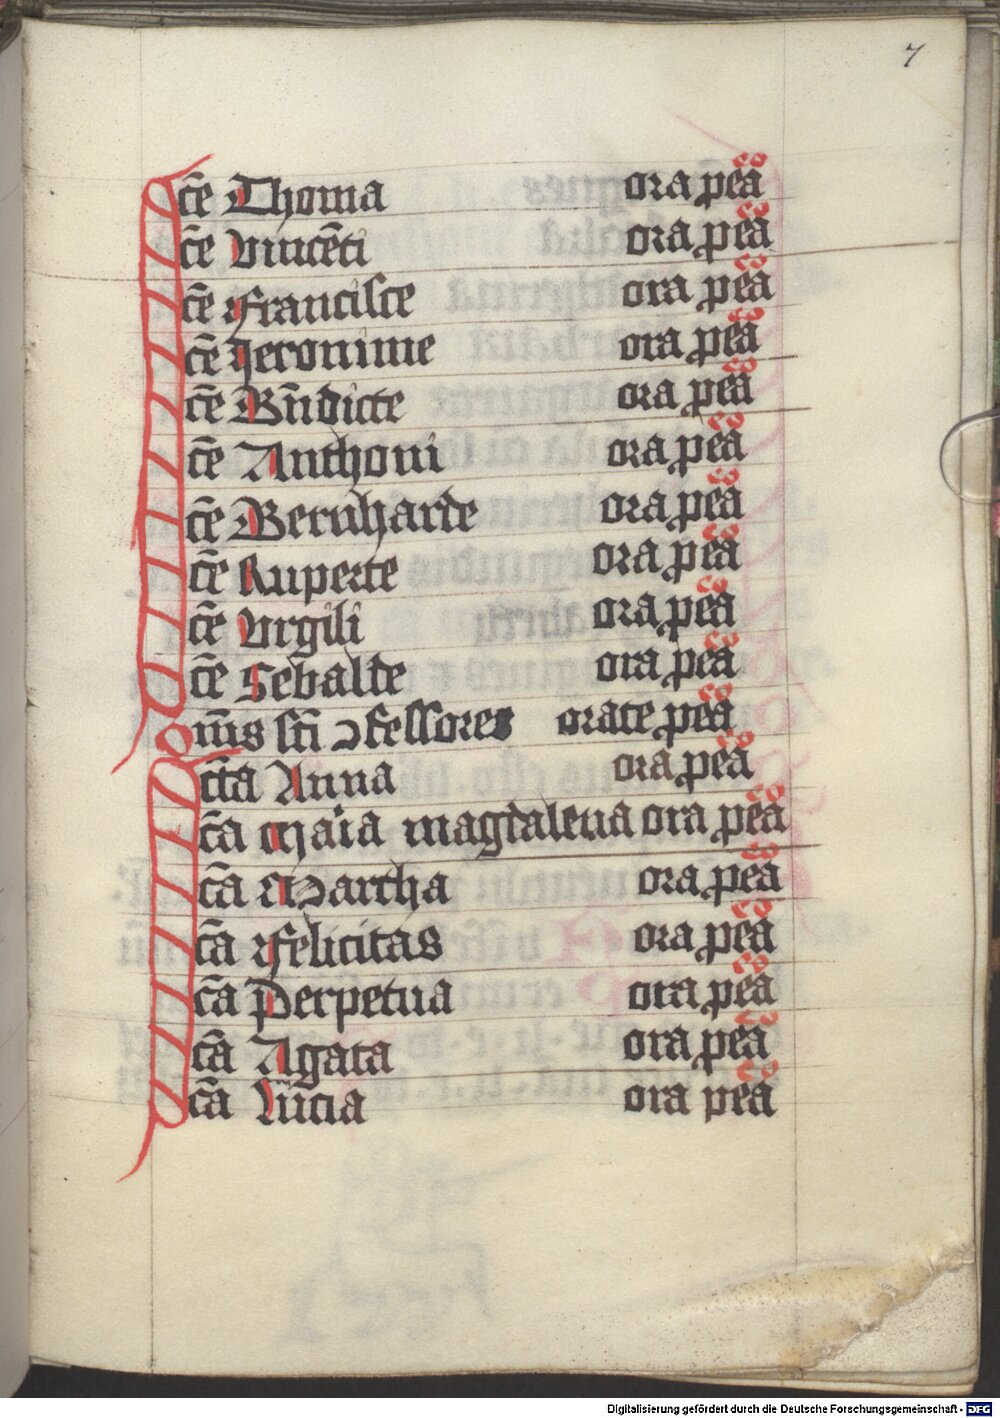 7
Sc̄e Thoma ora p eā eo
Sc̄e Vincēti ora p eā eo
Sc̄e Francisce ora p eā eo
Sc̄e Jeronime ora p eā eo
Sc̄e Bn̄dicte ora p eā eo
Sc̄e Anthoni ora p eā eo
Sc̄e Bernharde ora p eā eo
Sc̄e Ruperte ora p eā eo
Sc̄e Virgili ora p eā eo
Sc̄e Sebalde ora p eā eo
Om̄s sc̄ti ꝯfessores orate p eā eo
Sc̄ta Anna ora p eā eo
Sc̄a Maīa magdalena ora p eā eo
Sc̄a Martha ora p eā eo
Sc̄a Felicitas ora p eā eo
Sc̄a Perpetua ora p eā eo
Sc̄a Agata ora p eā eo
Sc̄a Lucia ora p eā eo
Digitalisierung gefördert durch die Deutsche Forschungsgemeinschaft - DFG